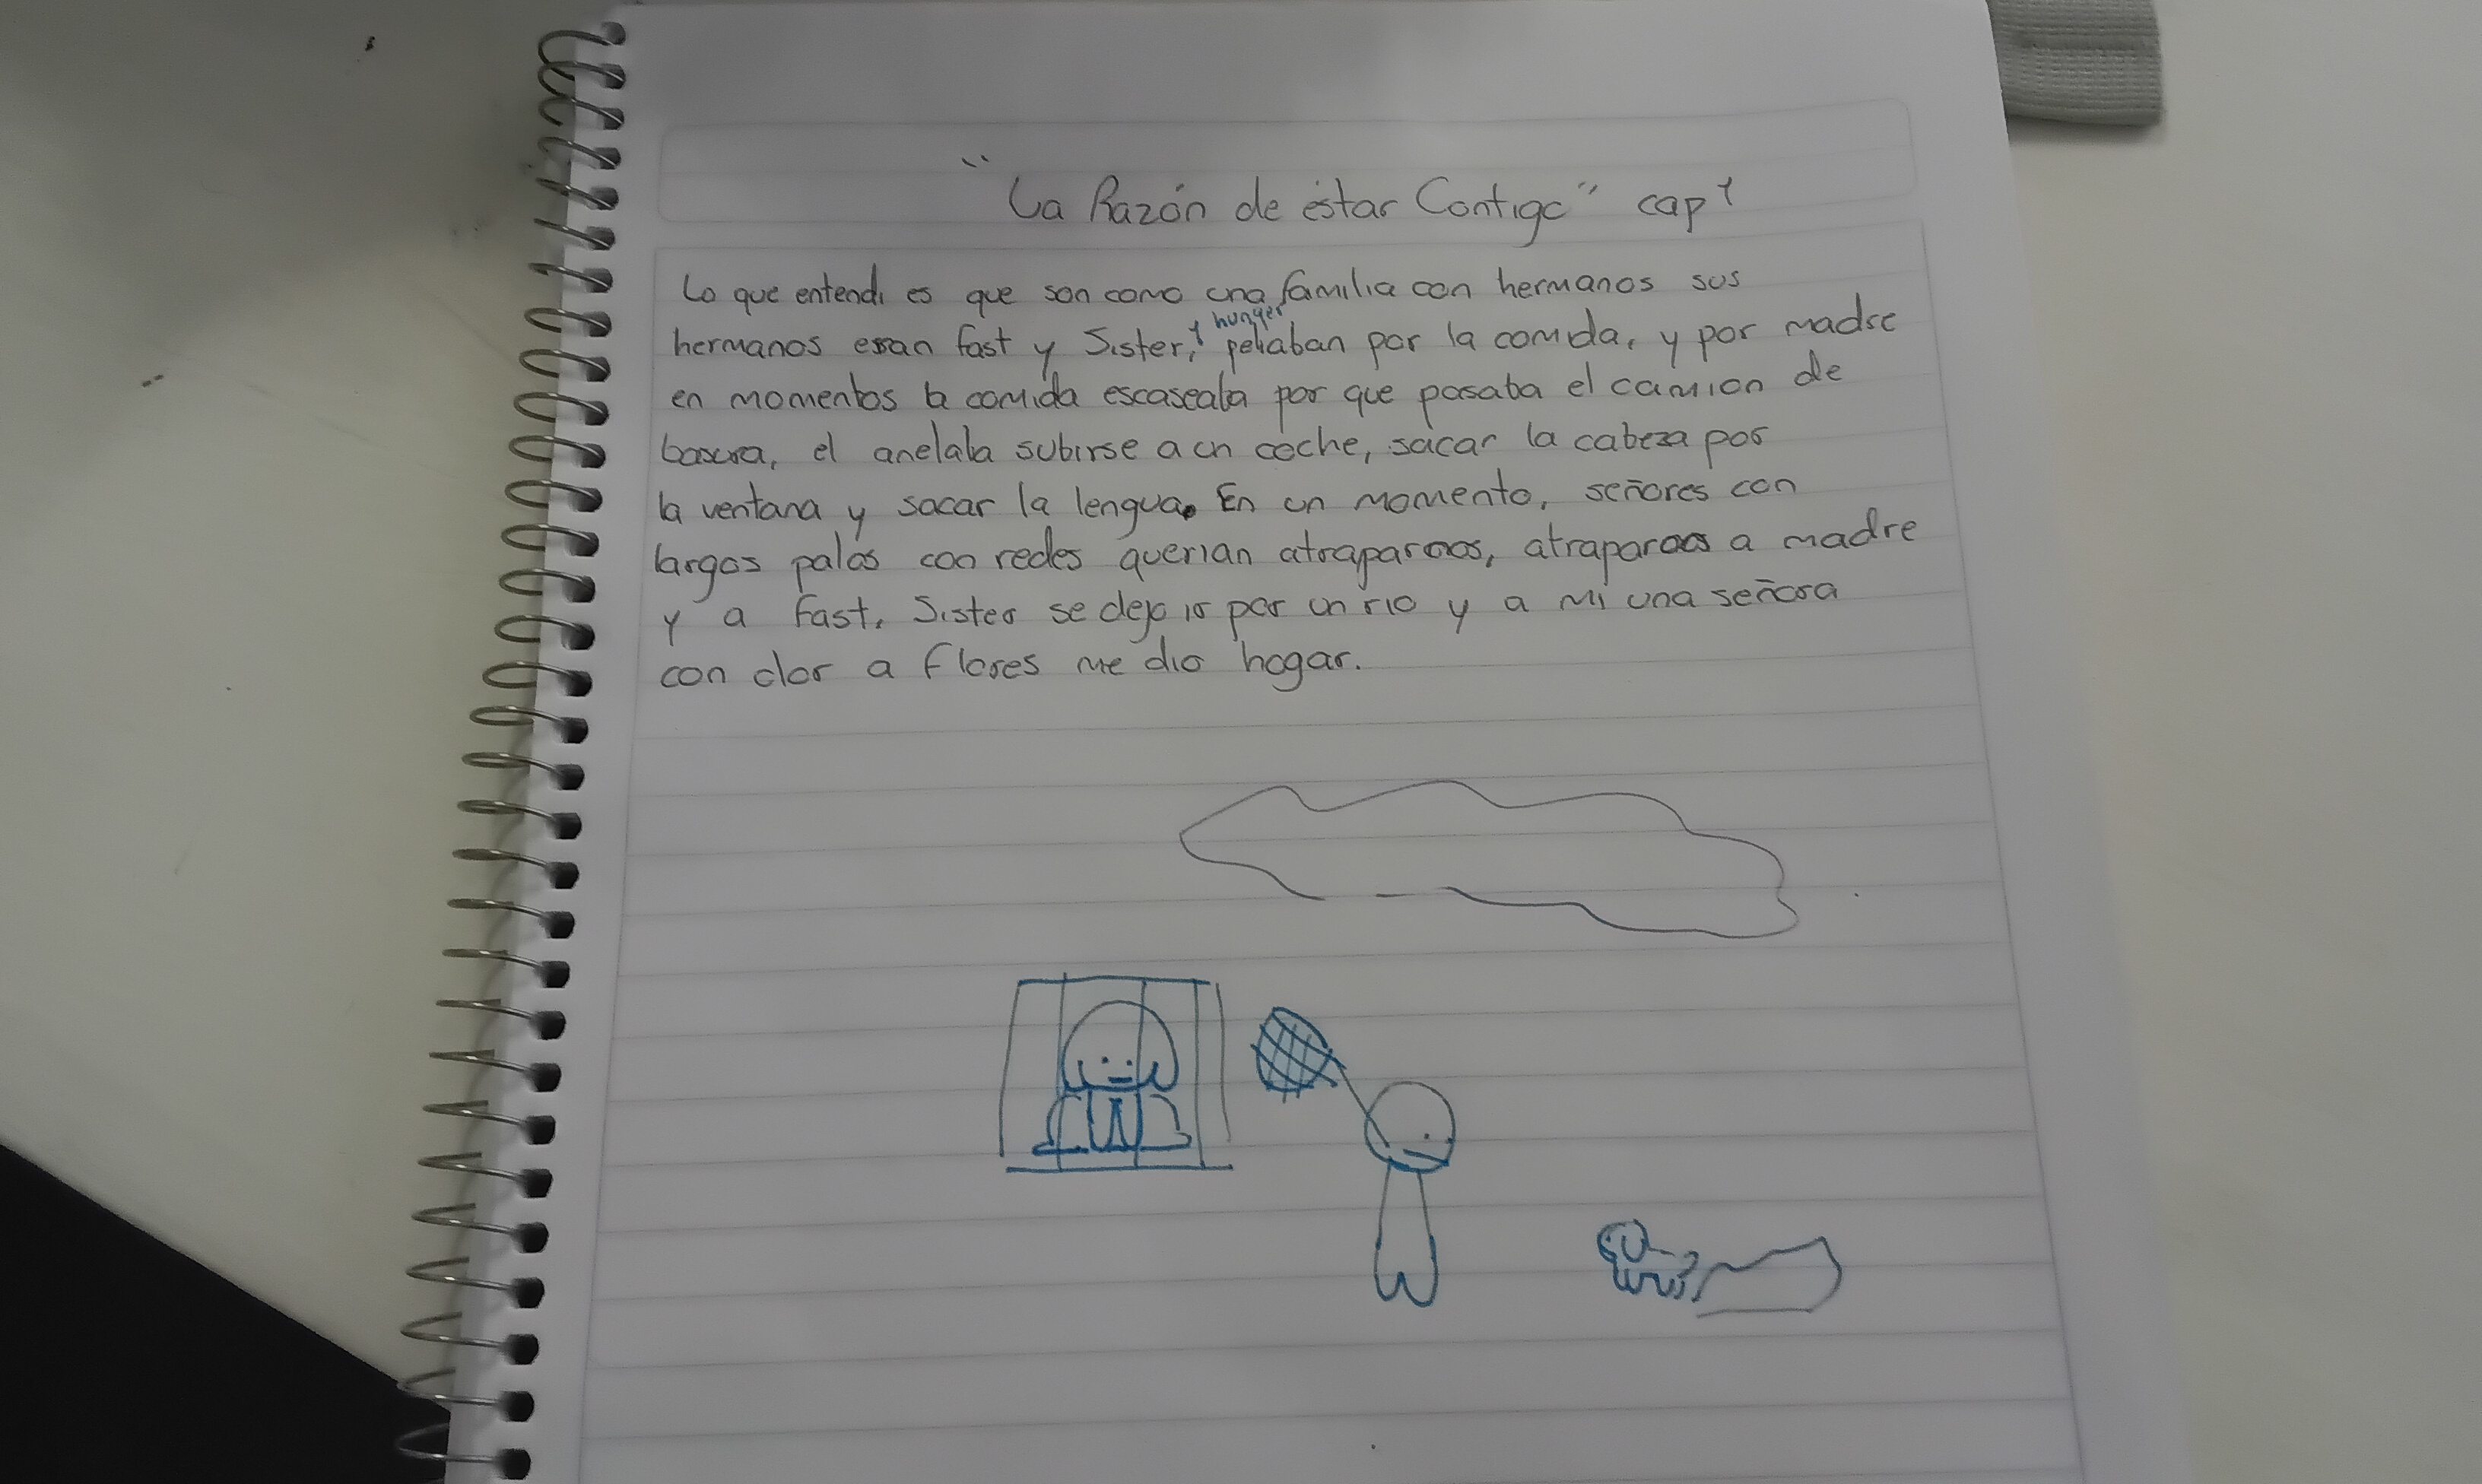 "La Razón de estar Contigo" cap 1
Lo que entendi es que son como una familia con hermanos sus
hermanos eran fast y Sister, y hunger peliaban por la comida, y por madre
en momentos la comida escaseaba por que pasaba el camion de
basura, el anelaba subirse a un coche, sacar la cabeza por
la ventana y sacar la lengua. En un momento, señores con
largos palos con redes querian atraparnos, atraparon a madre
y a fast. Sister se dejo ir por un rio y a mi una señora
con olor a flores me dio hogar.